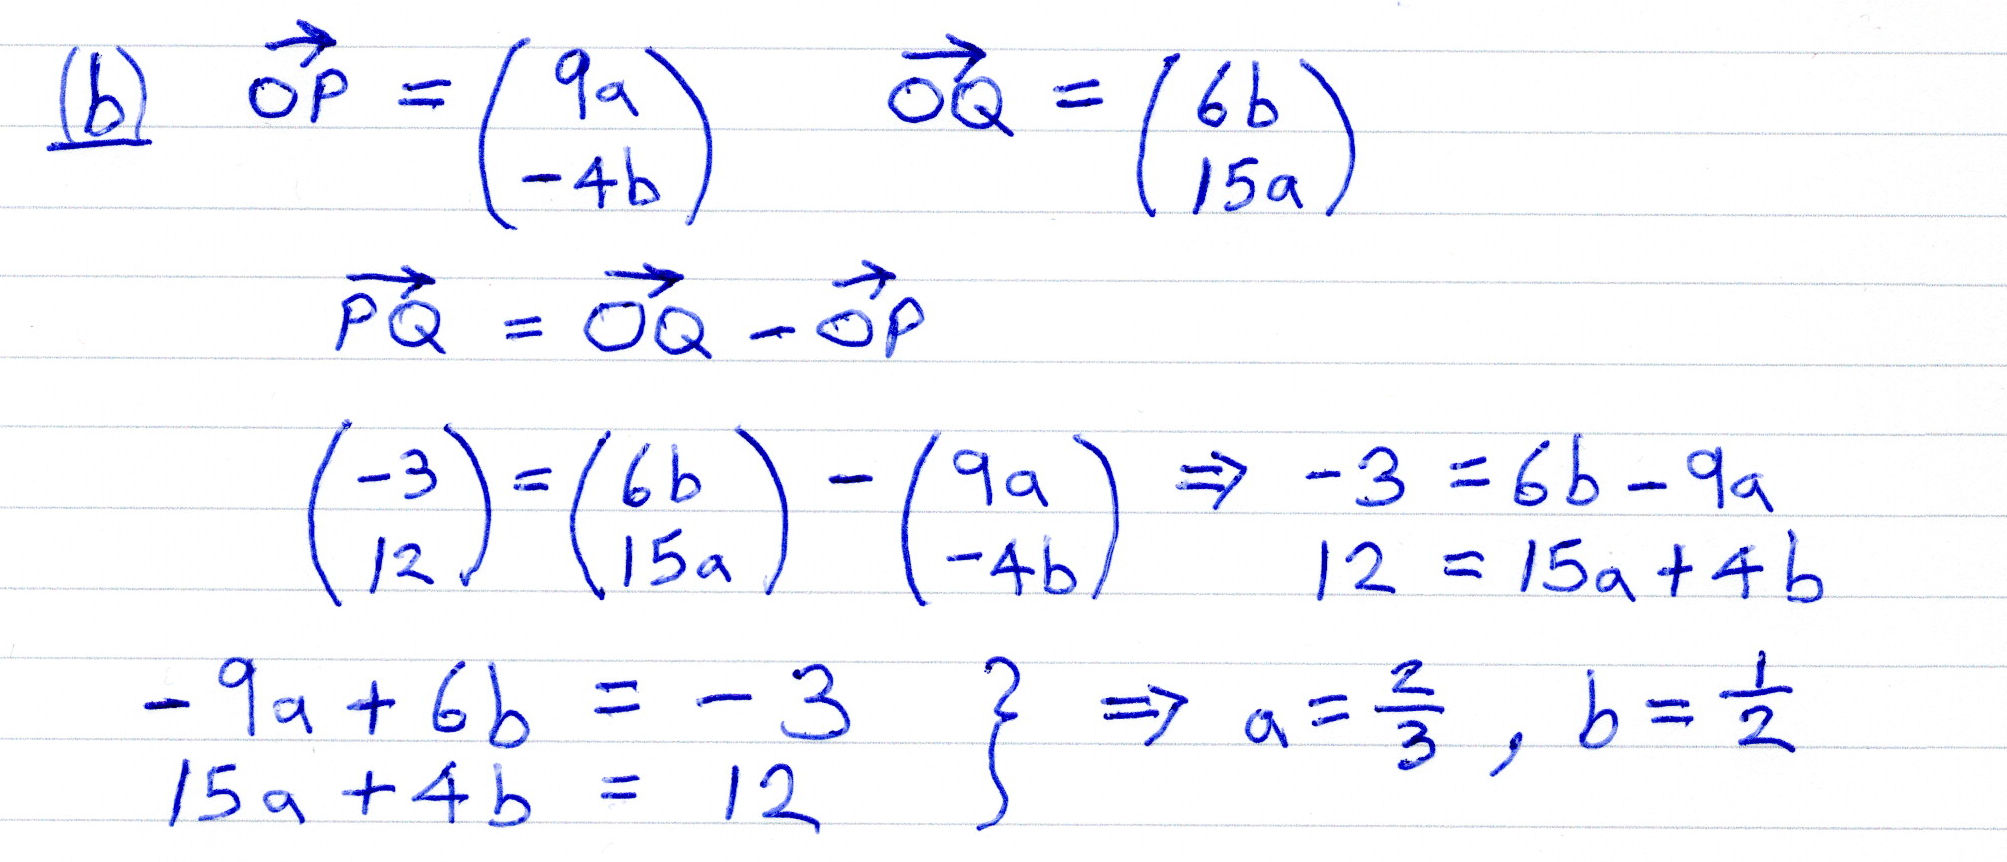 (b) \overrightarrow{OP} = \begin{pmatrix} 9a \\ -4b \end{pmatrix} \overrightarrow{OQ} = \begin{pmatrix} 6b \\ 15a \end{pmatrix}
\overrightarrow{PQ} = \overrightarrow{OQ} - \overrightarrow{OP}
\begin{pmatrix} -3 \\ 12 \end{pmatrix} = \begin{pmatrix} 6b \\ 15a \end{pmatrix} - \begin{pmatrix} 9a \\ -4b \end{pmatrix} ⇒ -3 = 6b - 9a
12 = 15a + 4b
-9a + 6b = -3 } ⇒ a = \frac{2}{3}, b = \frac{1}{2}
15a + 4b = 12